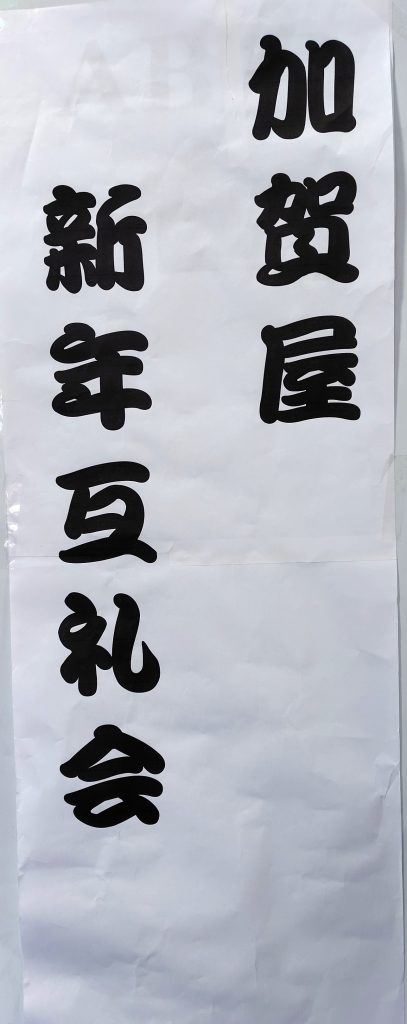 加賀屋
新年互礼会